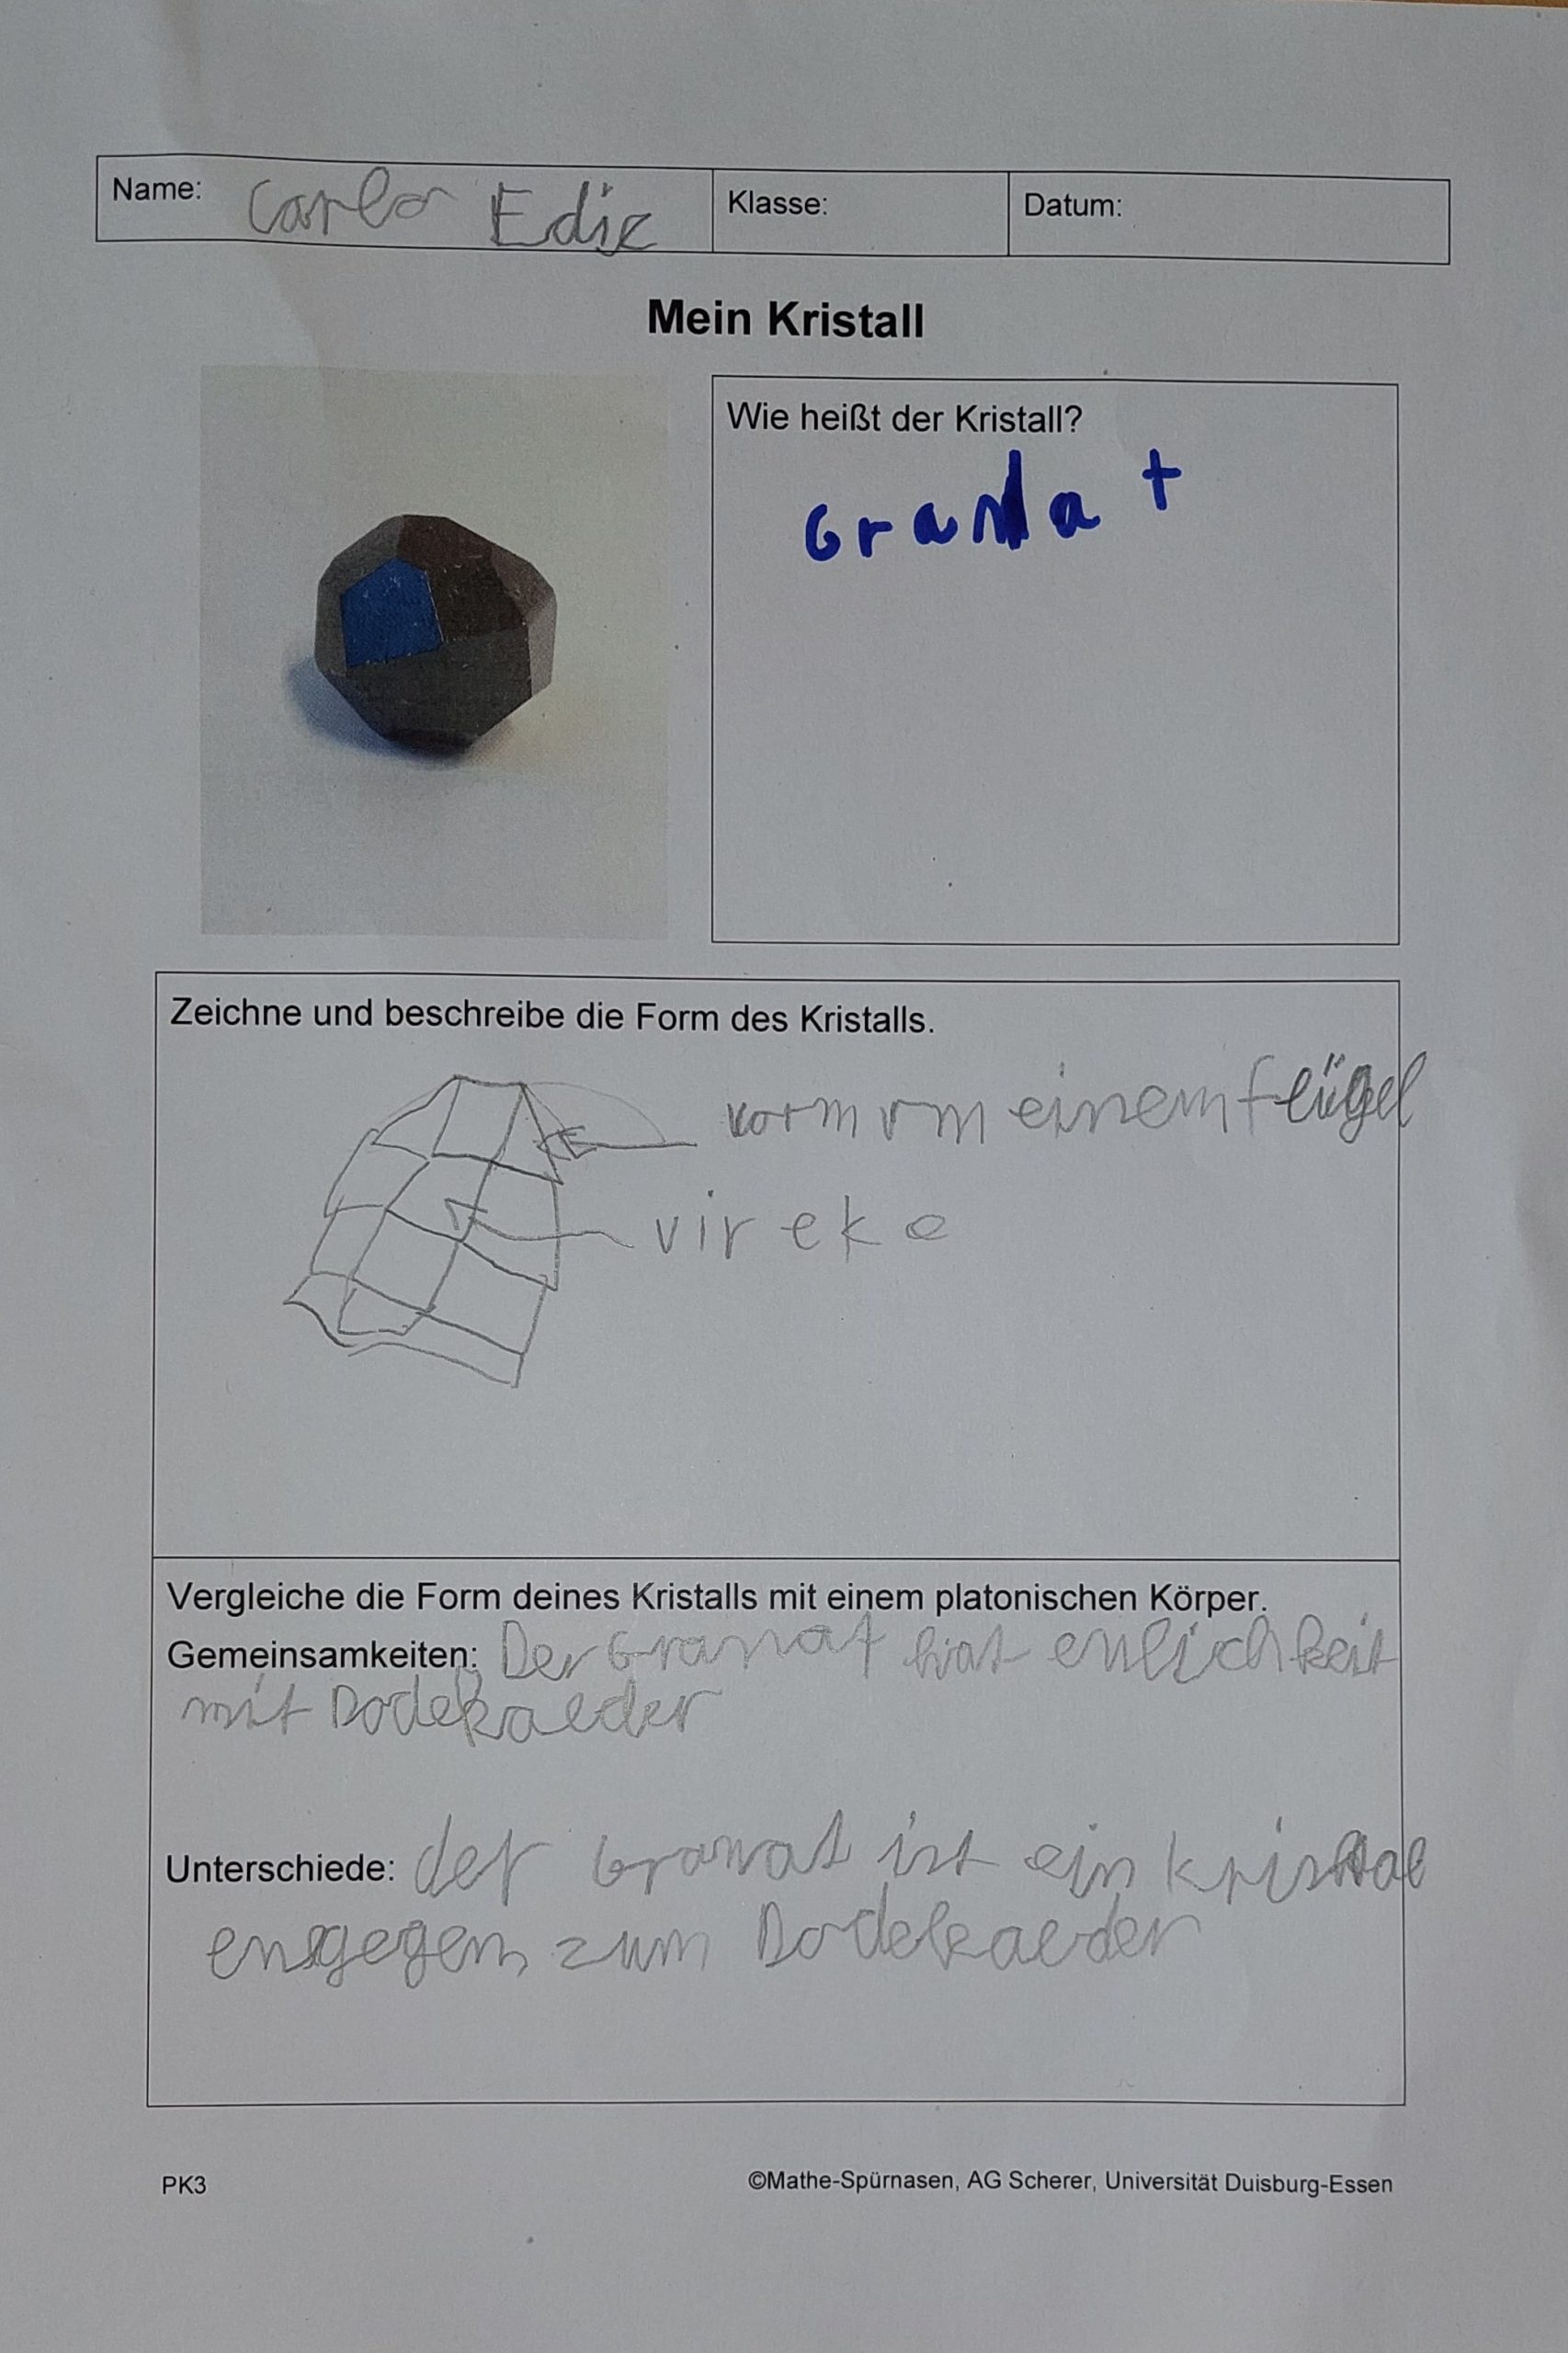 Name: Carlo Ediz
Klasse:
Datum:
Mein Kristall
Wie heißt der Kristall?
Granat
Zeichne und beschreibe die Form des Kristalls.
vorm vm einem flügel
vireke
Vergleiche die Form deines Kristalls mit einem platonischen Körper.
Gemeinsamkeiten: Der Granat hat enlichkeit
mit Dodekaeder
Unterschiede: der Granat ist ein kristal
engegen zum Dodekaeder
PK3
©Mathe-Spürnasen, AG Scherer, Universität Duisburg-Essen